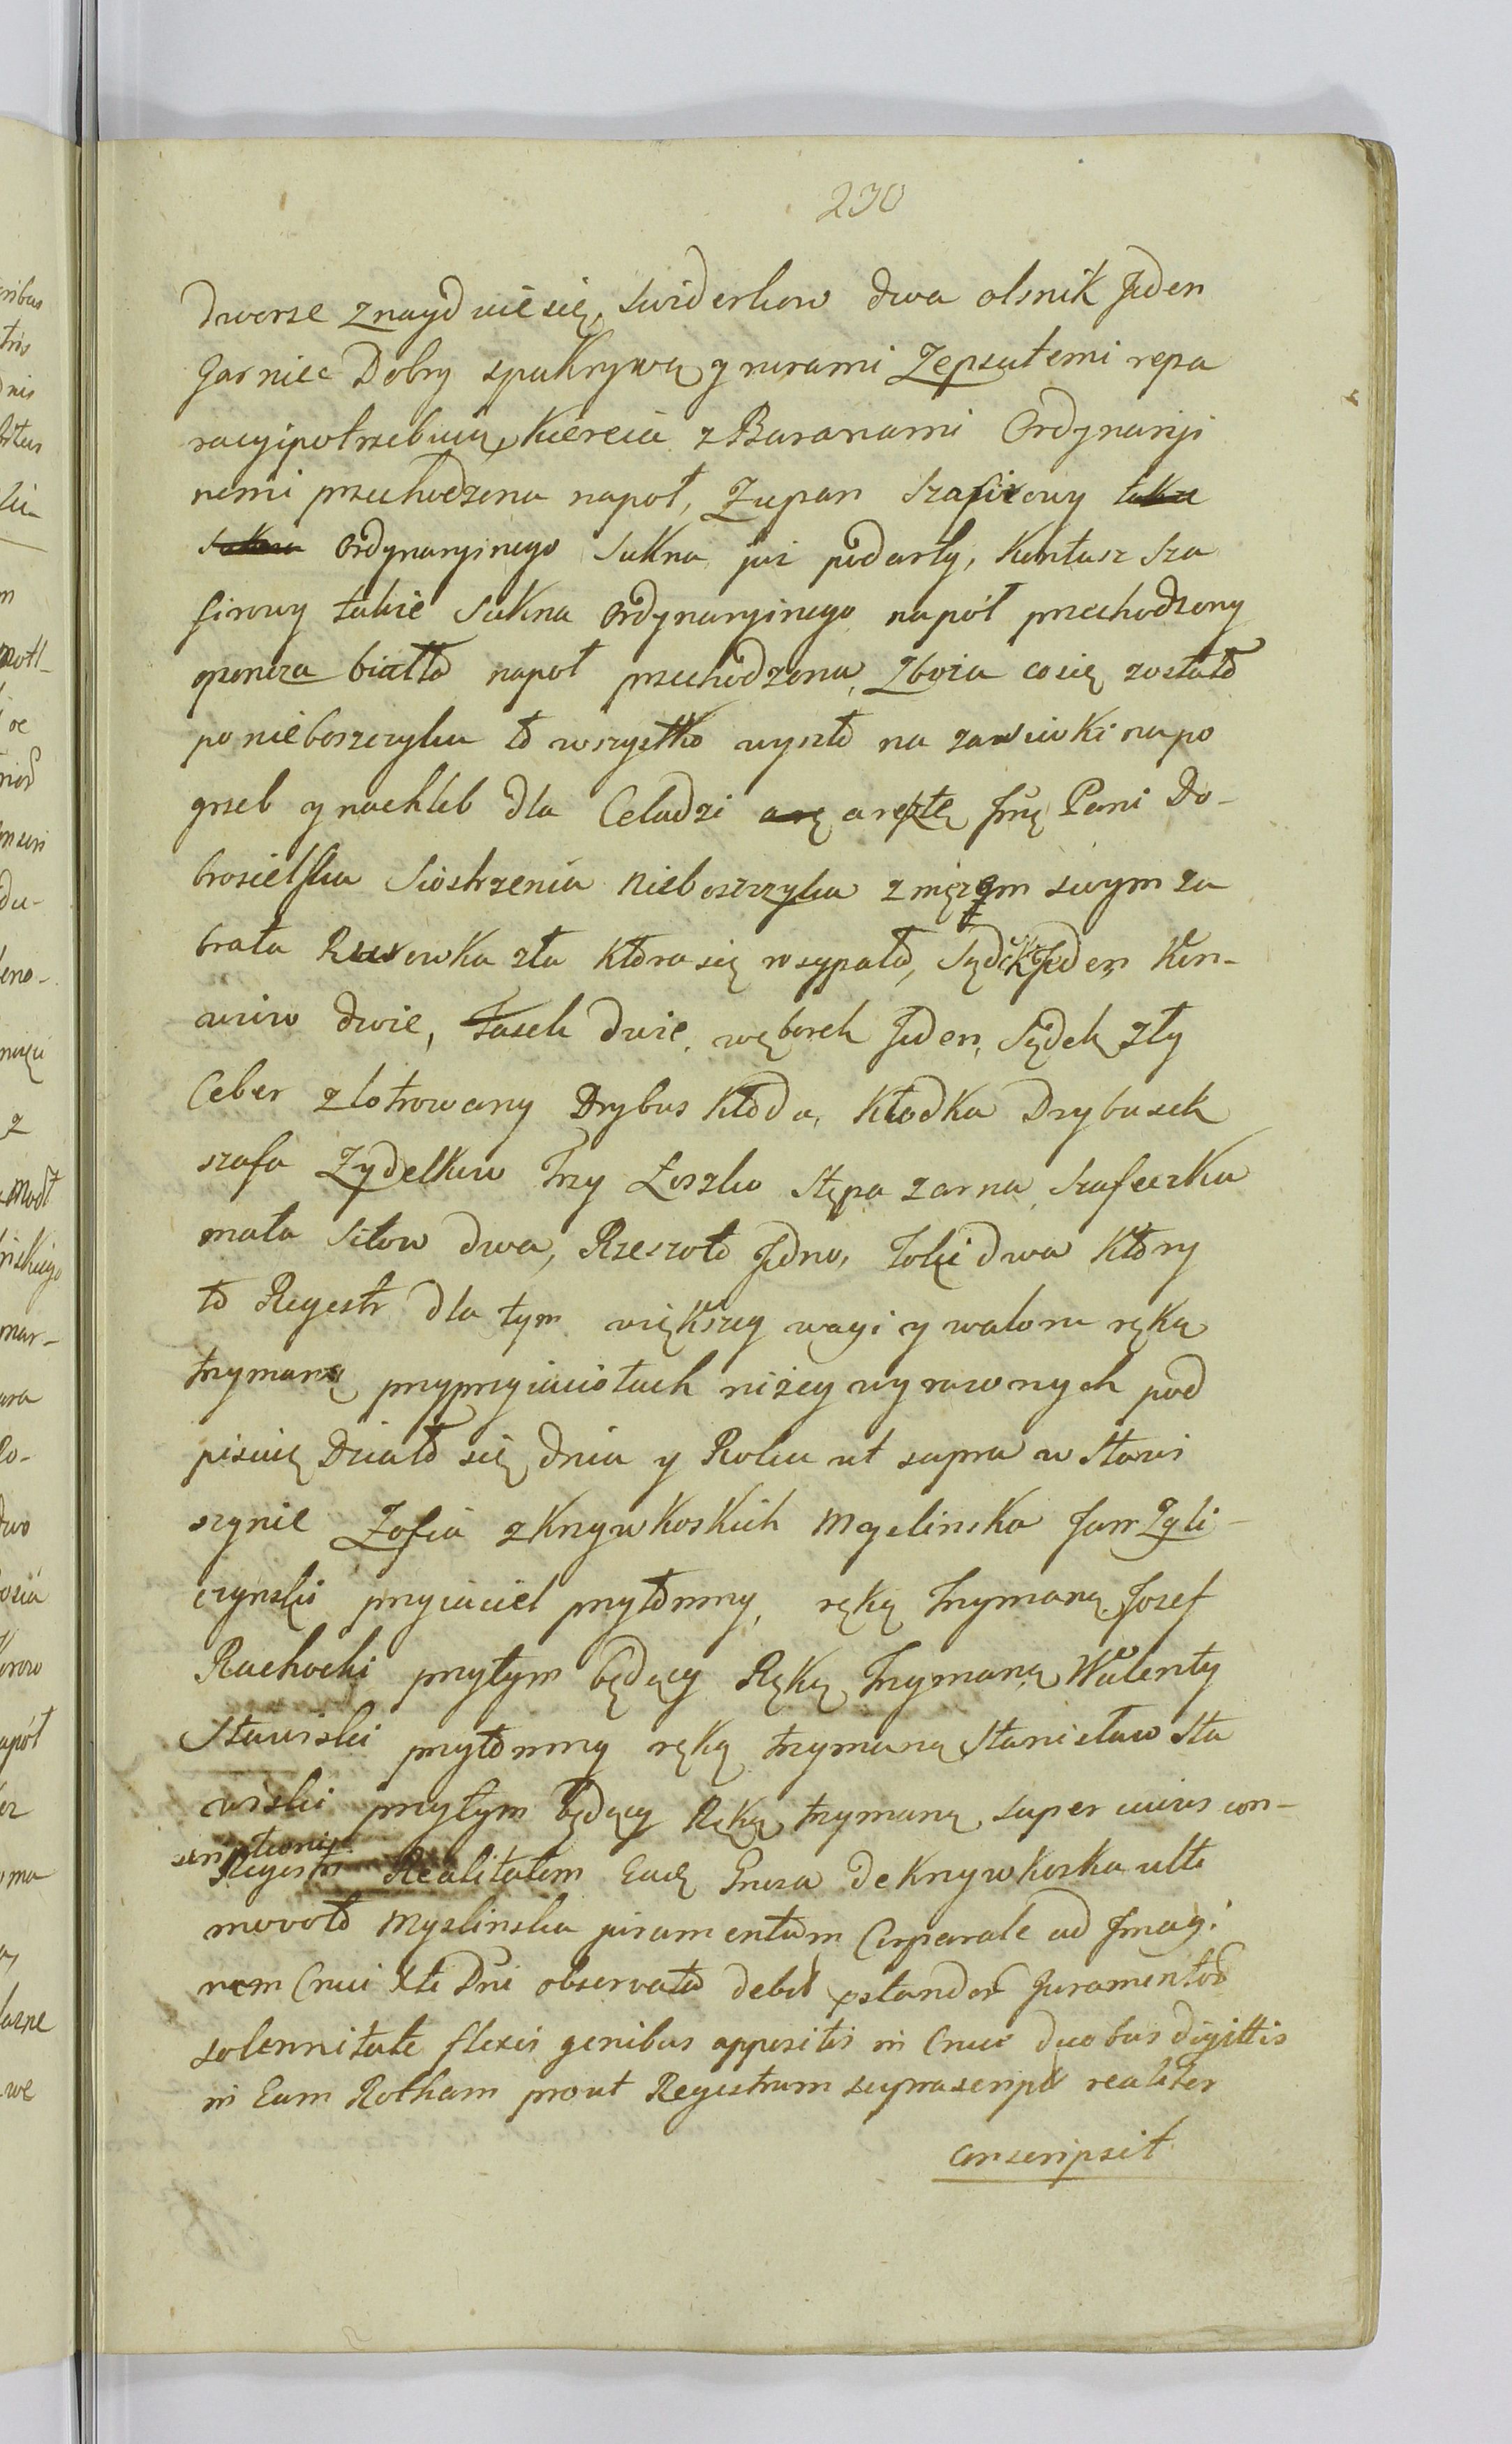 230
dworze znayduie się, swiderkow dwa olsnik Jeden
Garniec Dobry spukrywą y rurami Zepsutemi repa
racyipotrzebuią, Kiereia z Baranami Ordynaryi
nemi przechodzona napoł, Zupan Szafirowy takze
Sukna Ordynaryinego Sukna juz podarty, Kontusz Sza
firowy takze Sukna Ordynaryinego napół przechodzony
oponcza biała napoł przechodzona, Zboza cosię zostało
po nieboszczyku to wszystko wyszło na zasiwki napo
grzeb y nachleb dla Celadzi a rę a resztę Jmę Pani Do-
brosielska Siostrzenia Nieboszczyka z męzem swym za
brała Rusowka zła Ktora się rossypała, Sądek Jeden Kon-
wiow dwie, Fasek dwie, węborek Jeden, Sądek zły
Ceber zlotrowany Drybus Kłoda, Kłodka Drybusek
szafa Zydelkow Trzy Łoszko Stępa zarna, Szafeczka
mała Sitow dwa, Rzeszoto Jedno, Stolki dwa Ktory
to Regestr dla tym większey wagi y waloru ręką
trzymaną przyprzyiaciołach niżey wyrazonych pod
pisuię Działo się Dnia y Roku ut supra w Stawi
szynie Zofia z Knywkoskich Myslinska Jan Zyli-
czynski przyiaciel przytomny, ręką Trzymaną Jozef
Rachocki przytym będący Ręką Trzymaną Walenty
Stawiski przytomny ręką trzymaną Stanisław Sta
wiski przytym będący Ręką trzymaną, super cuius con-
scriptionis
Regestri Realitatem Eadę Grosa de Knywkoska ulti
movoto Myslinska juramentum Corporale ad Imagi
nem Cruci Xti Dni observata debit pstandor Juramentor
solennitate flexis genibus appositis in Cruce duobus digittis
in Eam Rotham prout Regestrum suprascript realiter
conscripsit